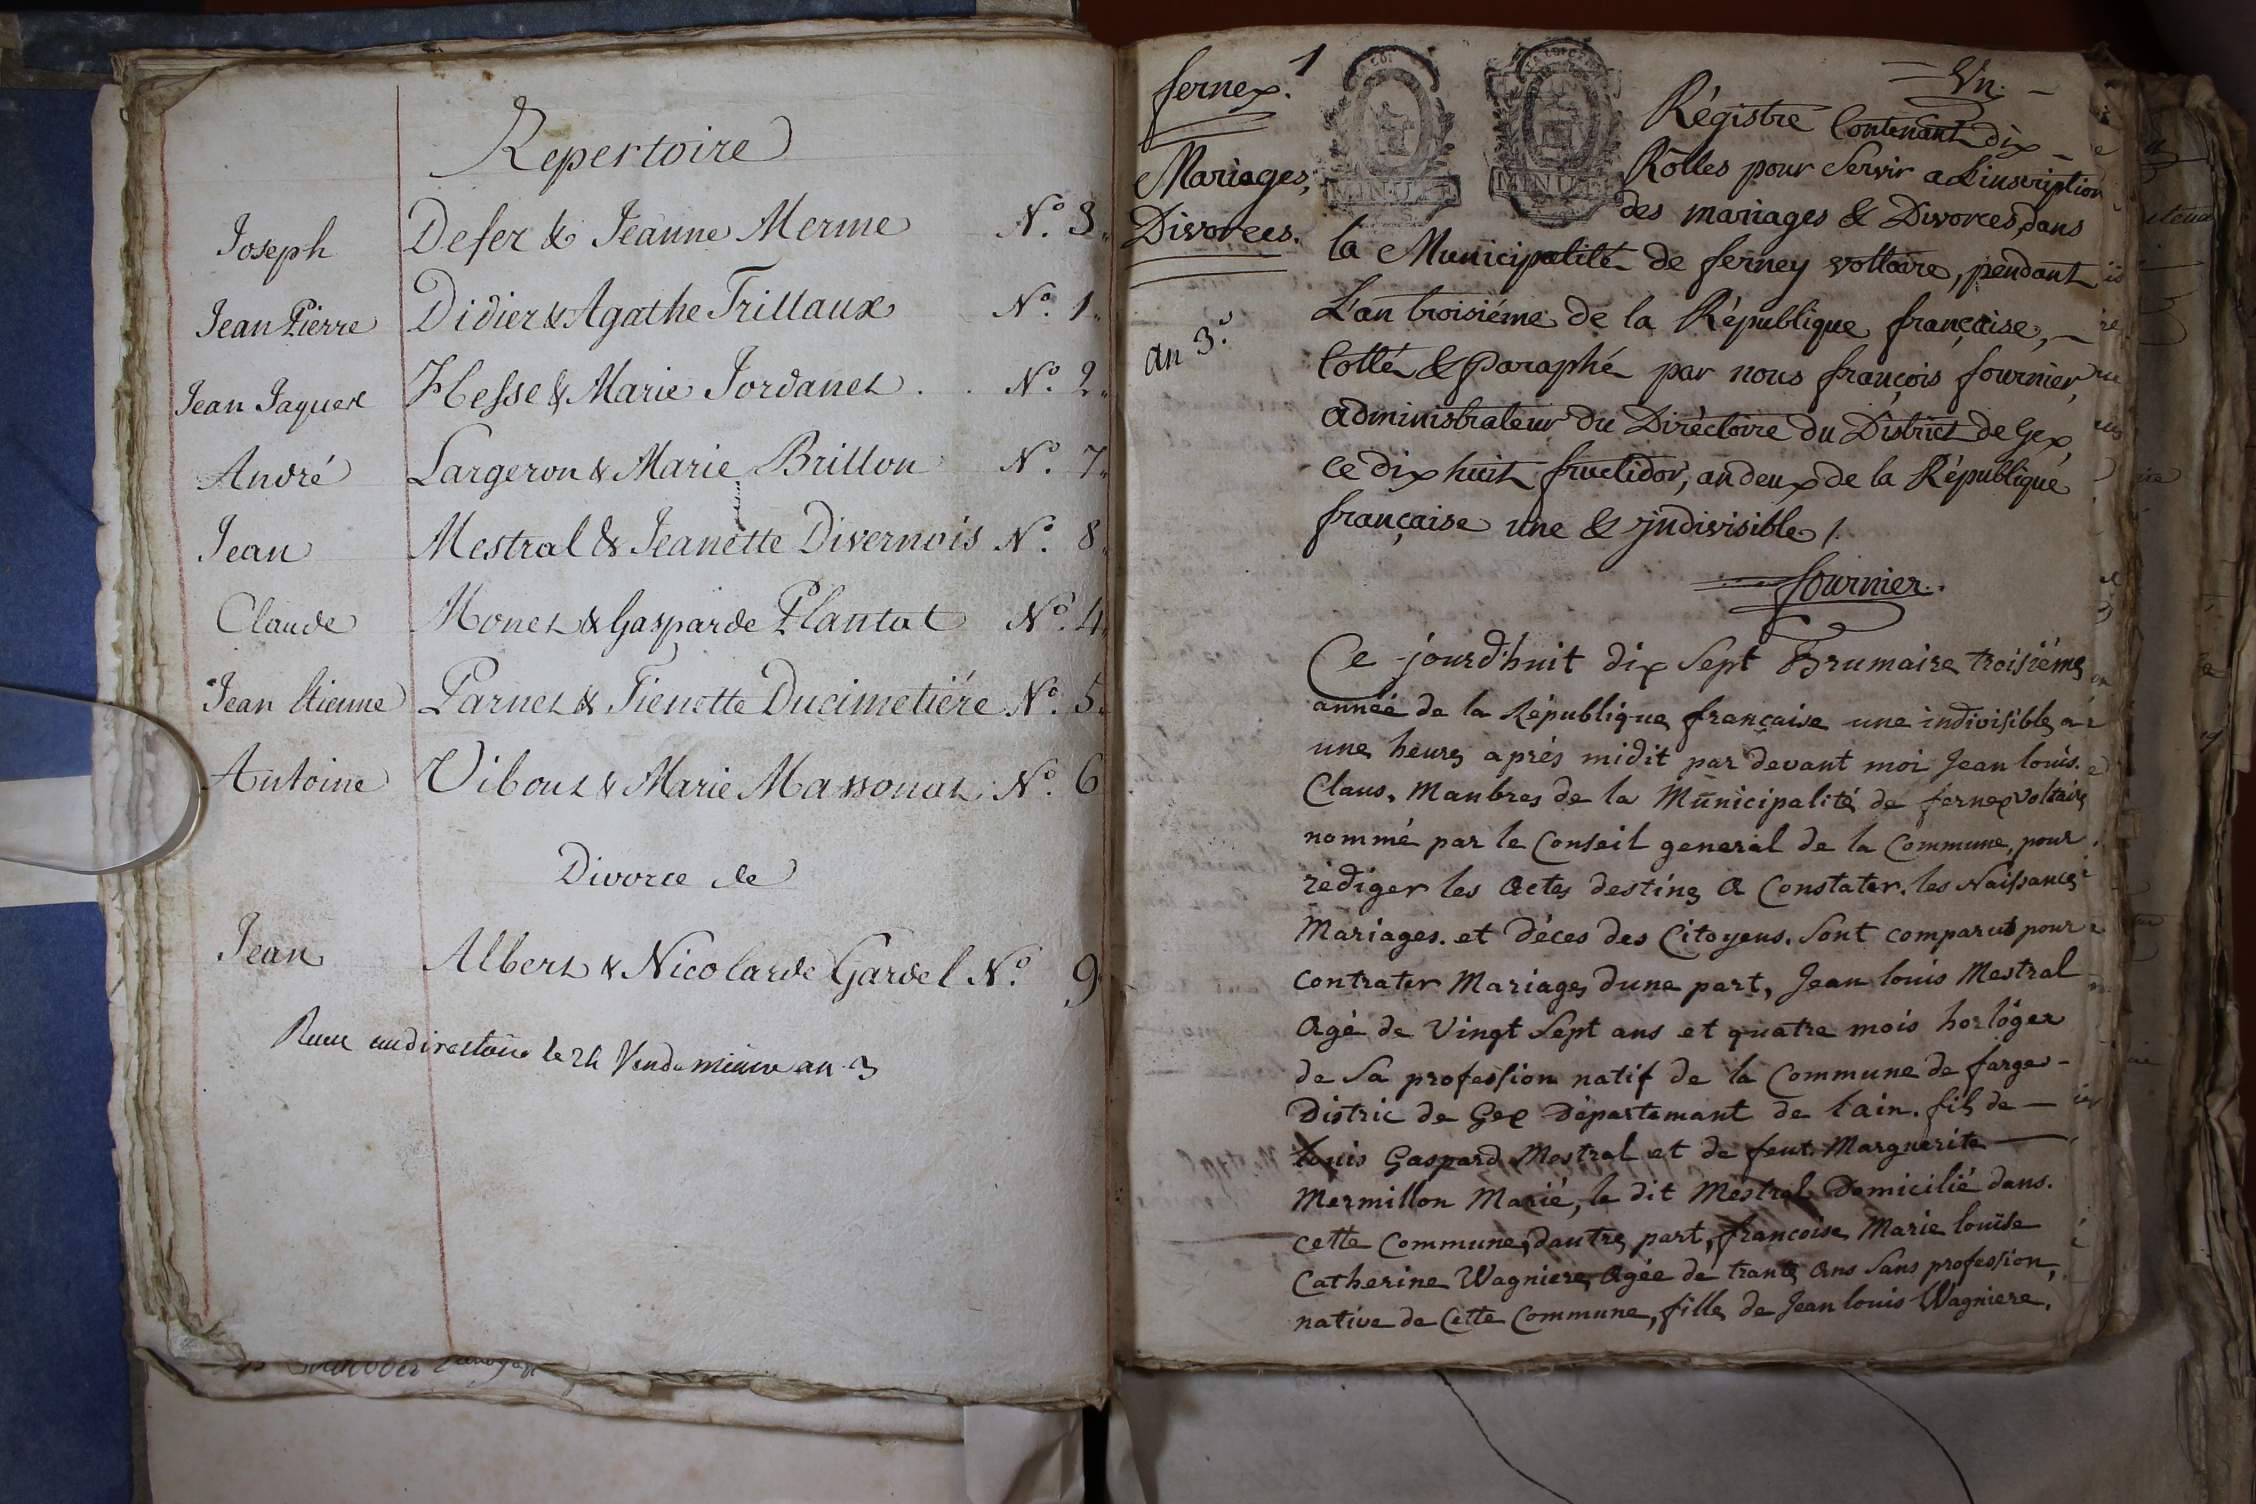 Repertoire
Joseph Defer & Jeanne Merme N.º 3.
Jean Pierre Didier & Agathe Trillaux N.º 1.
Jean Jaques Hesse & Marie Jordanet . . N.º 2.
André Largeron & Marie Brillon N.º 7.
Jean Mestral & Jeanette Divernois N.º 8.
Claude Monet & Gasparde Plantat N.º 4.
Jean Etienne Parnet & Tienette Ducimetiére N.º 5.
Antoine Vibout & Marie Massonat N.º 6
Divorce de
Jean Albert & Nicolarde Gardel N.º 9
au directoire le 24 Vendemiaire an 3
fernex. 1
Mariages,
Divorces.
an 3.e
Un.
MINUTE
MINUTE
Régistre Contenant dix
Rôlles pour Servir a L'inscription
des mariages & Divorces, dans
la Municipalité de ferney voltaire, pendant
L'an troisiéme de la République française,
Cotté & Paraphé par nous françois fournier,
administrateur du Diréctoire du District de Gex,
ce dix huit fructidor, an deux de la République
française une & jndivisible /.
fournier.
Ce jourd'huit dix Sept Brumaire troisiéme
année de la République française une indivisible, a
une heure aprés midit par devant moi Jean louis.
Claus, Manbres de la Municipalité de fernex voltaire
nommé par le Conseil general de la Commune, pour
rédiger les Actes destines a Constater. les Naissances
Mariages. et déces des Citoyens. Sont comparut pour
contrater Mariages dune part, Jean louis Mestral
Agé de Vingt Sept ans et quatre mois horlôger
de Sa profession natif de la Commune de farge-
Distric de Gex Départemant de lain. fils de —
louis Gaspard Mestral et de feut. Marguerite —
Mermillon Marié, le dit Mestral Domicilié dans.
cette Commune, dautre part, francoise Marie louise
Catherine Wagniere, Agée de trante Ans Sans profession,
native de Cette Commune, fille de Jean louis Wagniere.